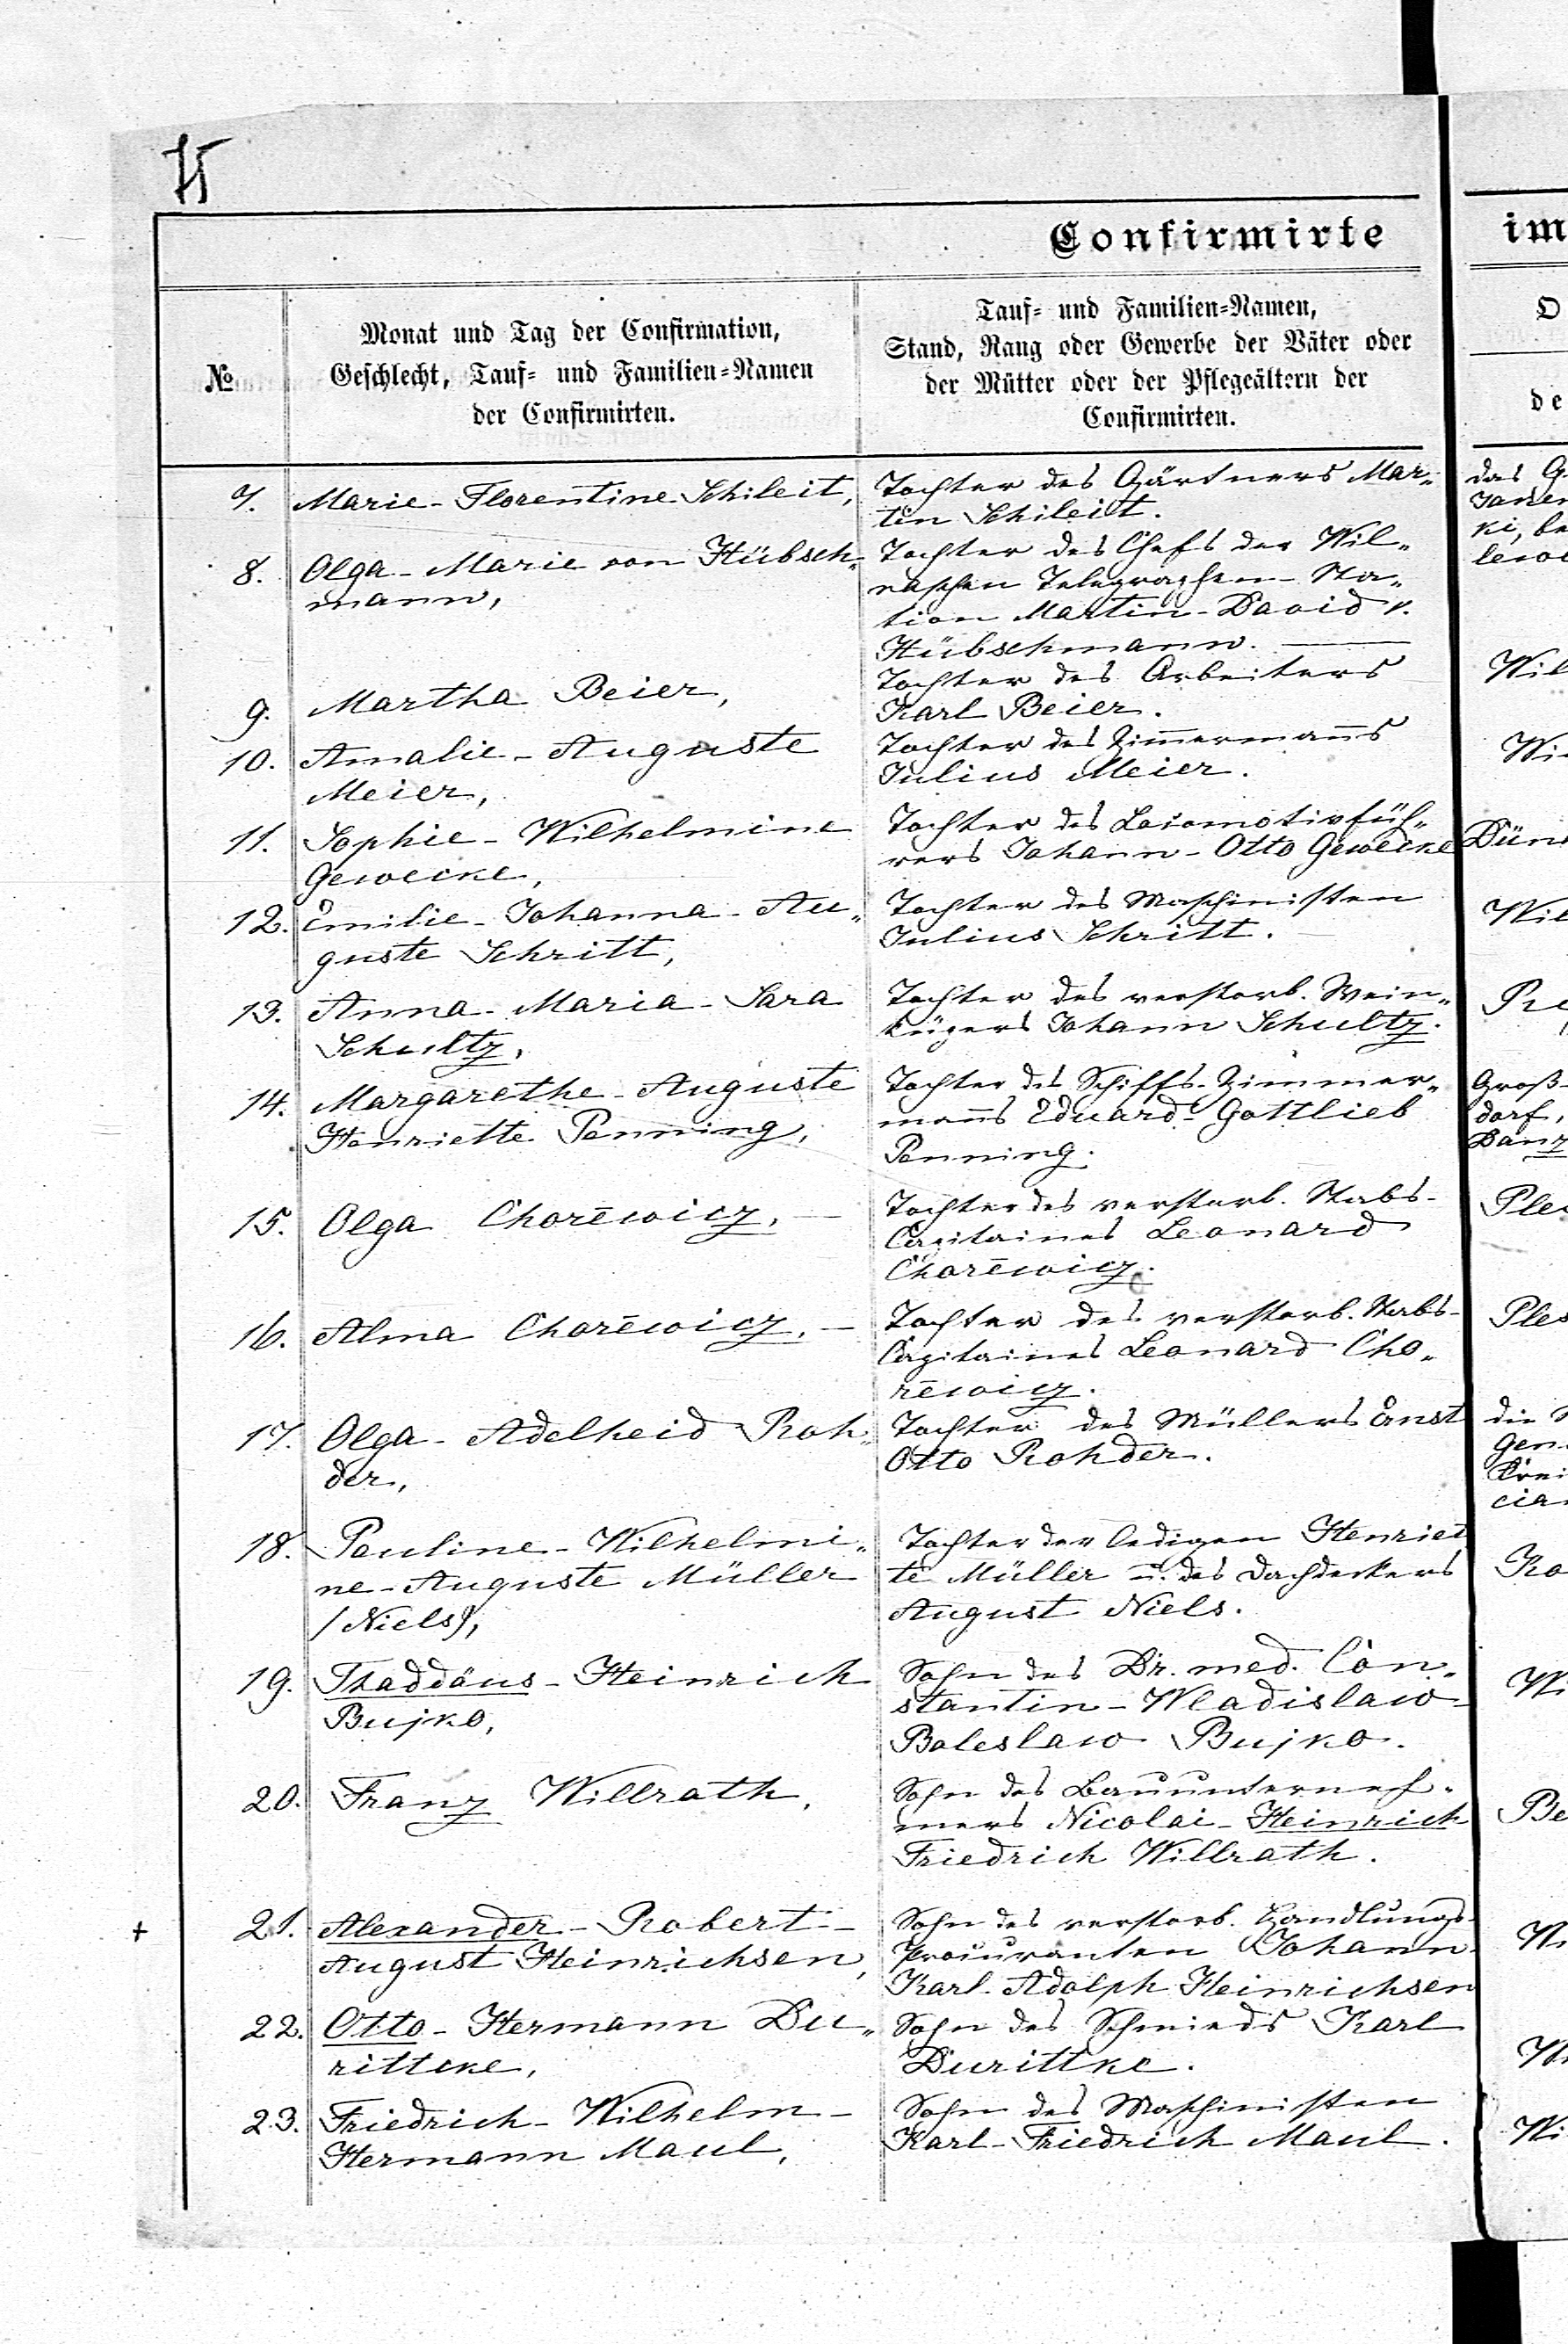 Confirmirte
im
№
Monat und Tag der Confirmation,
Geschlecht, Tauf- und Familien-Namen
der Confirmirten.
Tauf- und Familien-Namen,
Stand, Rang oder Gewerbe der Väter oder
der Mütter oder der Pflegeältern der
Confirmirten.
O
de
7. Marie-Florentine Schileit,
Tochter des Gärtners Mar„
tin Schileit.
das G
ki, be
8. Olga-Marie von Hübsch„
mann,
Tochter des Chefs der Wil„
naschen Telegraphen-Sta„
tion Martin-David v.
Hübschmann.
9. Martha Beier,
Tochter des Arbeiters
Karl Beier.
Wil
10. Amalie-Auguste
Meier,
Tochter des Zim̄erman̄s
Julius Meier.
Wi
11. Sophie-Wilhelmine
Gewecke,
Tochter des Locomotivfüh„
rers Johann-Otto Gewecke
Dün
12. Emilie-Johanna-Au„
guste Schritt,
Tochter des Maschinisten
Julius Schritt.
Wil
13. Anna-Maria-Sara
Schultz,
Tochter des verstorb. Wein„
küpers Johann Schultz.
14. Margarethe-Auguste
Henriette Penning,
Tochter des Schiffs-Zimmer„
man̄s Eduard-Gottlieb
Penning.
Groß-
dorf,
Danz
15. Olga Chorēwicz,
Tochter des verstorb. Stabs-
Capitaines Leonard
Chorēwicz.
Ples
16. Alma Chorēwicz,
Tochter des verstorb. Stabs-
Capitaines Leonard Cho„
rēwicz.
Ples
17. Olga-Adelheid Roh„
der,
Tochter des Müllers Ernst
Otto Rohder.
die
Gen.
Krei
cia
18. Pauline-Wilhelmi„
ne-Auguste Müller
/Niels/,
Tochter der ledigen Henriet
te Müller u. des Dachdeckers
August Niels.
Ko
19. Thaddäus-Heinrich
Bujko,
Sohn des Dr. med. Con„
stantin-Wladislaw-
Boleslaw Bujko.
Wi
20. Franz Willrath,
Sohn des Bauunterneh„
mers Nicolai-Heinrich
Friedrich Willrath.
Be
+ 21. Alexander-Robert-
August Heinrichsen,
Sohn des verstorb. Handlungs-
Procuranten Johann
Karl-Adolph Heinrichsen
Wi
22. Otto-Hermann Du„
rittcke,
Sohn des Schmieds Karl
Durittke.
Wi
23. Friedrich-Wilhelm-
Hermann Maul,
Sohn des Maschinisten
Karl-Friedrich Maul.
Wi